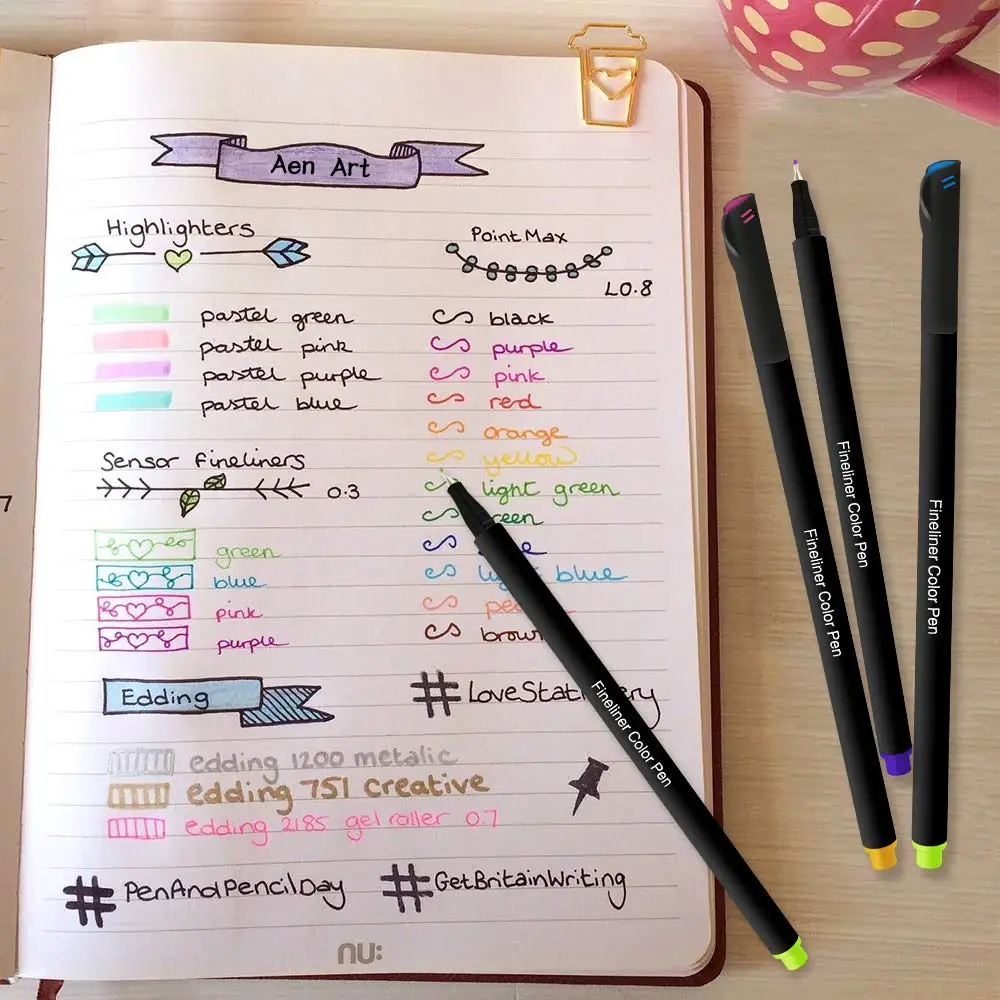 Aen Art
Highlighters
pastel green
pastel pink
pastel purple
pastel blue
Sensor Fineliners
0.3
green
blue
pink
purple
Edding
edding 1200 metalic
edding 751 creative
edding 2185 gel roller 0.7
#PenAndPencilDay
Point Max
L0.8
black
purple
pink
red
orange
yellow
light green
blue
brown
#LoveStationery
#GetBritainWriting
nu:
7
Fineliner Color Pen
Fineliner Color Pen
Fineliner Color Pen
Fineliner Color Pen